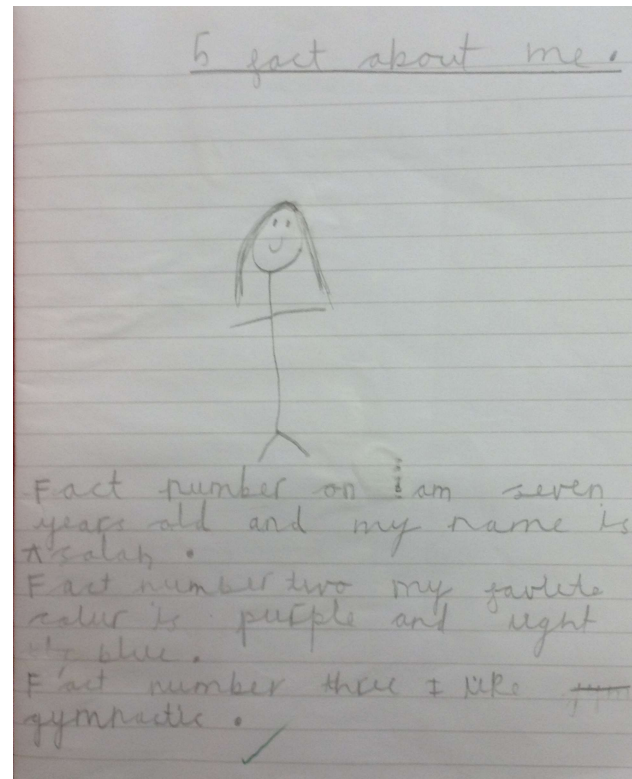 5 fact about me.
Fact number on I am seven
years old and my name is
Fact number two my favlete
colur is purple and light
blue.
Fact number three I like
gymnactic.